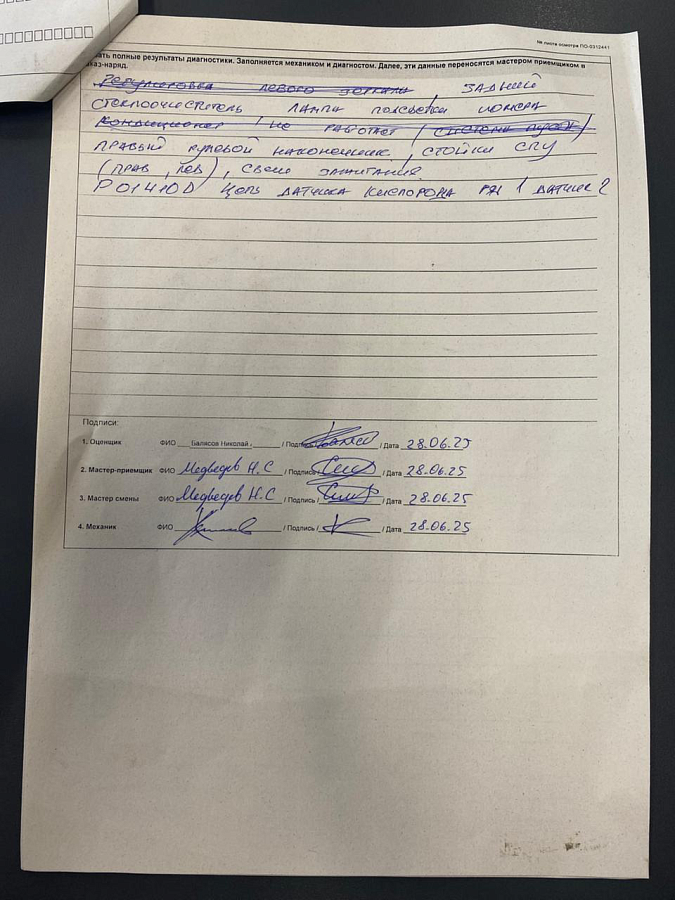 № листа осмотра ПО-0312441
ать полные результаты диагностики. Заполняется механиком и диагностом. Далее, эти данные переносятся мастером приемщиком в
аказ-наряд.
Регулировка левого зеркала, ЗАДНИЙ
СТЕКЛООЧИСТИТЕЛЬ ЛАМПА ПОДСВЕТКИ НОМЕРА
Кондиционер НЕ РАБОТАЕТ (система пуска)
ПРАВЫЙ РУЛЕВОЙ НАКОНЕЧНИК, СТОЙКИ СПУ
(ПРАВ, ЛЕВ), СВЕЧИ ЗАЖИГАНИЯ
P01410D ЦЕПЬ ДАТЧИКА КИСЛОРОДА РЯД 1 ДАТЧИК 2
Подписи:
1. Оценщик ФИО Балясов Николай, / Подпись / / Дата 28.06.25
2. Мастер-приемщик ФИО Медведев Н.С / Подпись / / Дата 28.06.25
3. Мастер смены ФИО Медведев Н.С / Подпись / / Дата 28.06.25
4. Механик ФИО / Подпись / / Дата 28.06.25